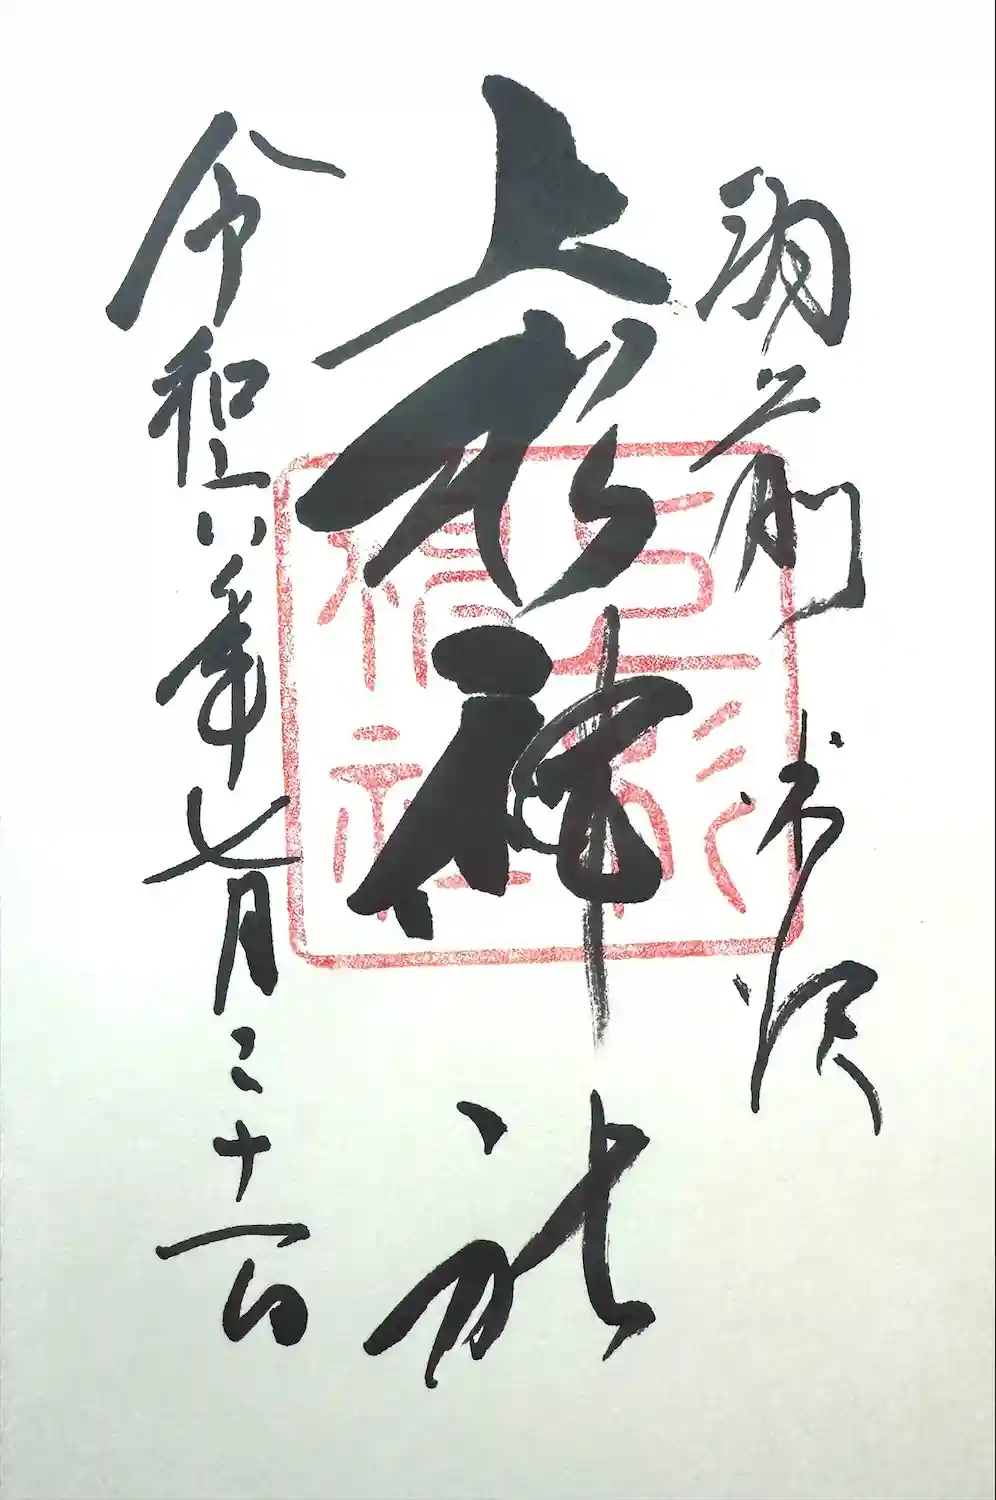 羽前 米沢
上杉神社
令和六年七月二十一日
上杉
神社